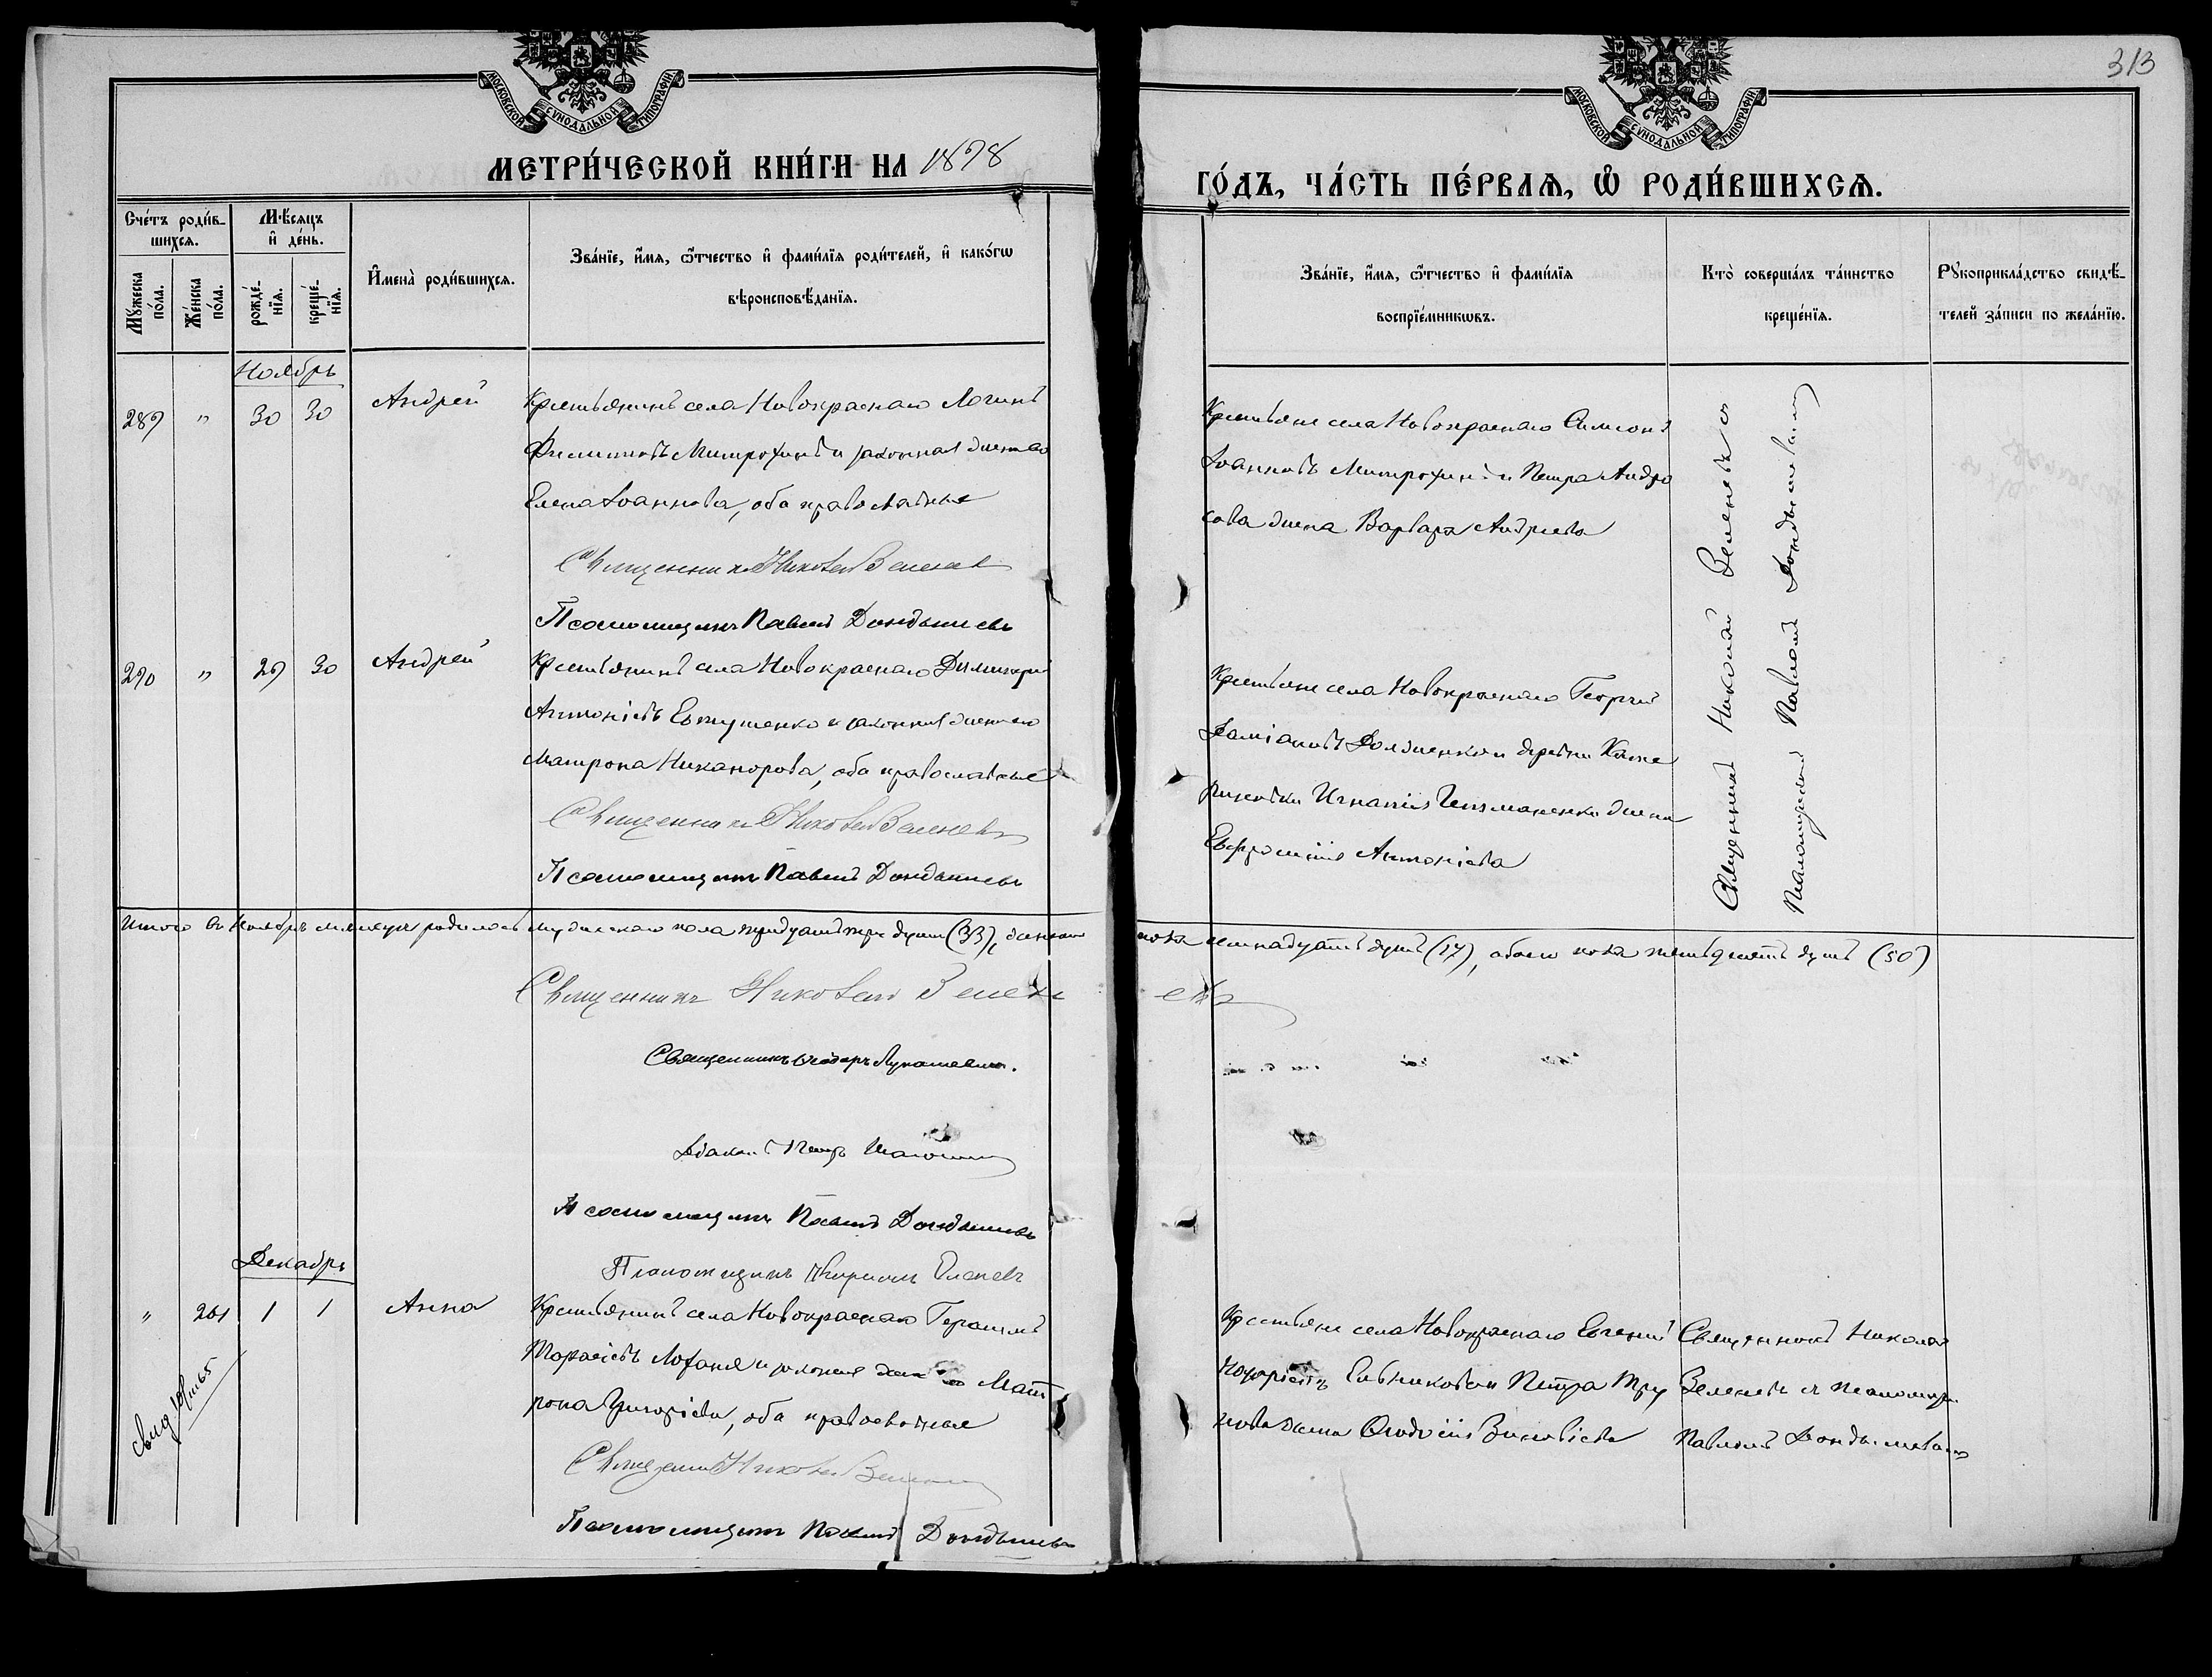 313
МОСКОВСКОЙ СѴНОДАЛЬНОЙ ТИПОГРАФІИ
МОСКОВСКОЙ СѴНОДАЛЬНОЙ ТИПОГРАФІИ
МЕТРИ́ЧЕСКОЙ КНИ́ГИ НА 1898
ГО́ДЪ, ЧА́СТЬ ПЕ́РВАЯ, Ѡ РОДИ́ВШИХСЯ.
Сче́тъ роди́в-
шихся.
Мѣ́сяцъ
и де́нь.
Мꙋ́жеска по́ла.
Же́нска по́ла.
рожде́-нїя.
креще́-нїя.
Имена̀ роди́вшихся.
Зва́нїе, и́мя, ѻ́тчество и фами́лїя роди́телей, и како́гѡ
вѣроисповѣ́данїя.
Зва́нїе, и́мя, ѻ́тчество и фами́лїя
воспрїе́мникѡвъ.
Кто̀ соверша́лъ та́инство
креще́нїя.
Рꙋкоприкла́дство свидѣ́-
телей за́писи по жела́нїю.
Ноябрь
289 " 30 30 Андрей
Крестьянинъ села Новокраснаго Логинъ
Филиповъ Митрофинъ и законная жена его
Елена Іоаннова, оба православные
Священникъ Николай Зеленевъ
Псаломщикъ Павелъ Дондышевъ
Крестьяне села Новокраснаго Симеонъ
Іоанновъ Митрофинъ и Петра Андро
сова жена Варвара Андреева
Священникъ Николай Зеленевъ съ
Псаломщикомъ Павломъ Дондышевымъ
290 " 29 30 Андрей
Крестьянинъ села Новокраснаго Димитрій
Антоніевъ Евтушенко и законная жена его
Матрона Никанорова, оба православные
Священникъ Николай Зеленевъ
Псаломщикъ Павелъ Дондышевъ
Крестьяне села Новокраснаго Георгій
Даміановъ Долженко и деревни Кате
риновки Игнатія жена
Евфросинія Антоніева
Итого въ Ноябрѣ мѣсяцѣ родилось мужескаго пола тридцать три души (33), женскаго
пола семнадцать душъ (17), обоего пола пятьдесятъ душъ (50)
Священникъ Николай Зеленевъ
Священникъ Ѳеодоръ Лукашевичъ.
Діаконъ Петръ
Псаломщикъ Павелъ Дондышевъ
Псаломщикъ Кириллъ
Декабрь
" 201 1 1 Анна
Крестьянинъ села Новокраснаго Герасимъ
Тарасіевъ и законная жена его Мат
рона Григоріева, оба православные
Священникъ Николай Зеленевъ
Псаломщикъ Павелъ Дондышевъ
Крестьяне села Новокраснаго Евгеній
и Петра Тру
нова жена Ѳеодосія
Священникъ Николай
Зеленевъ съ псаломщи
Павломъ Дондышевымъ